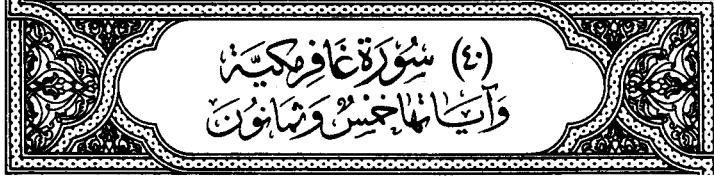 (٤٠) سُوْرَةُ غَافِرْ مَكيَّة
وَآيَاتهَا خَمْسٌ وَثَمَانُونَ